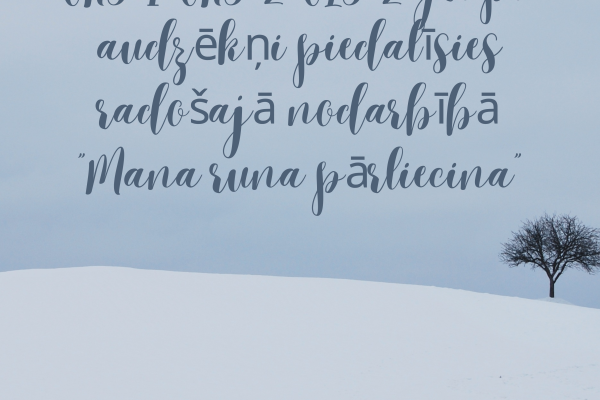 audzēkņi piedalīsies
radošajā nodarbībā
"Mana runa pārliecina"